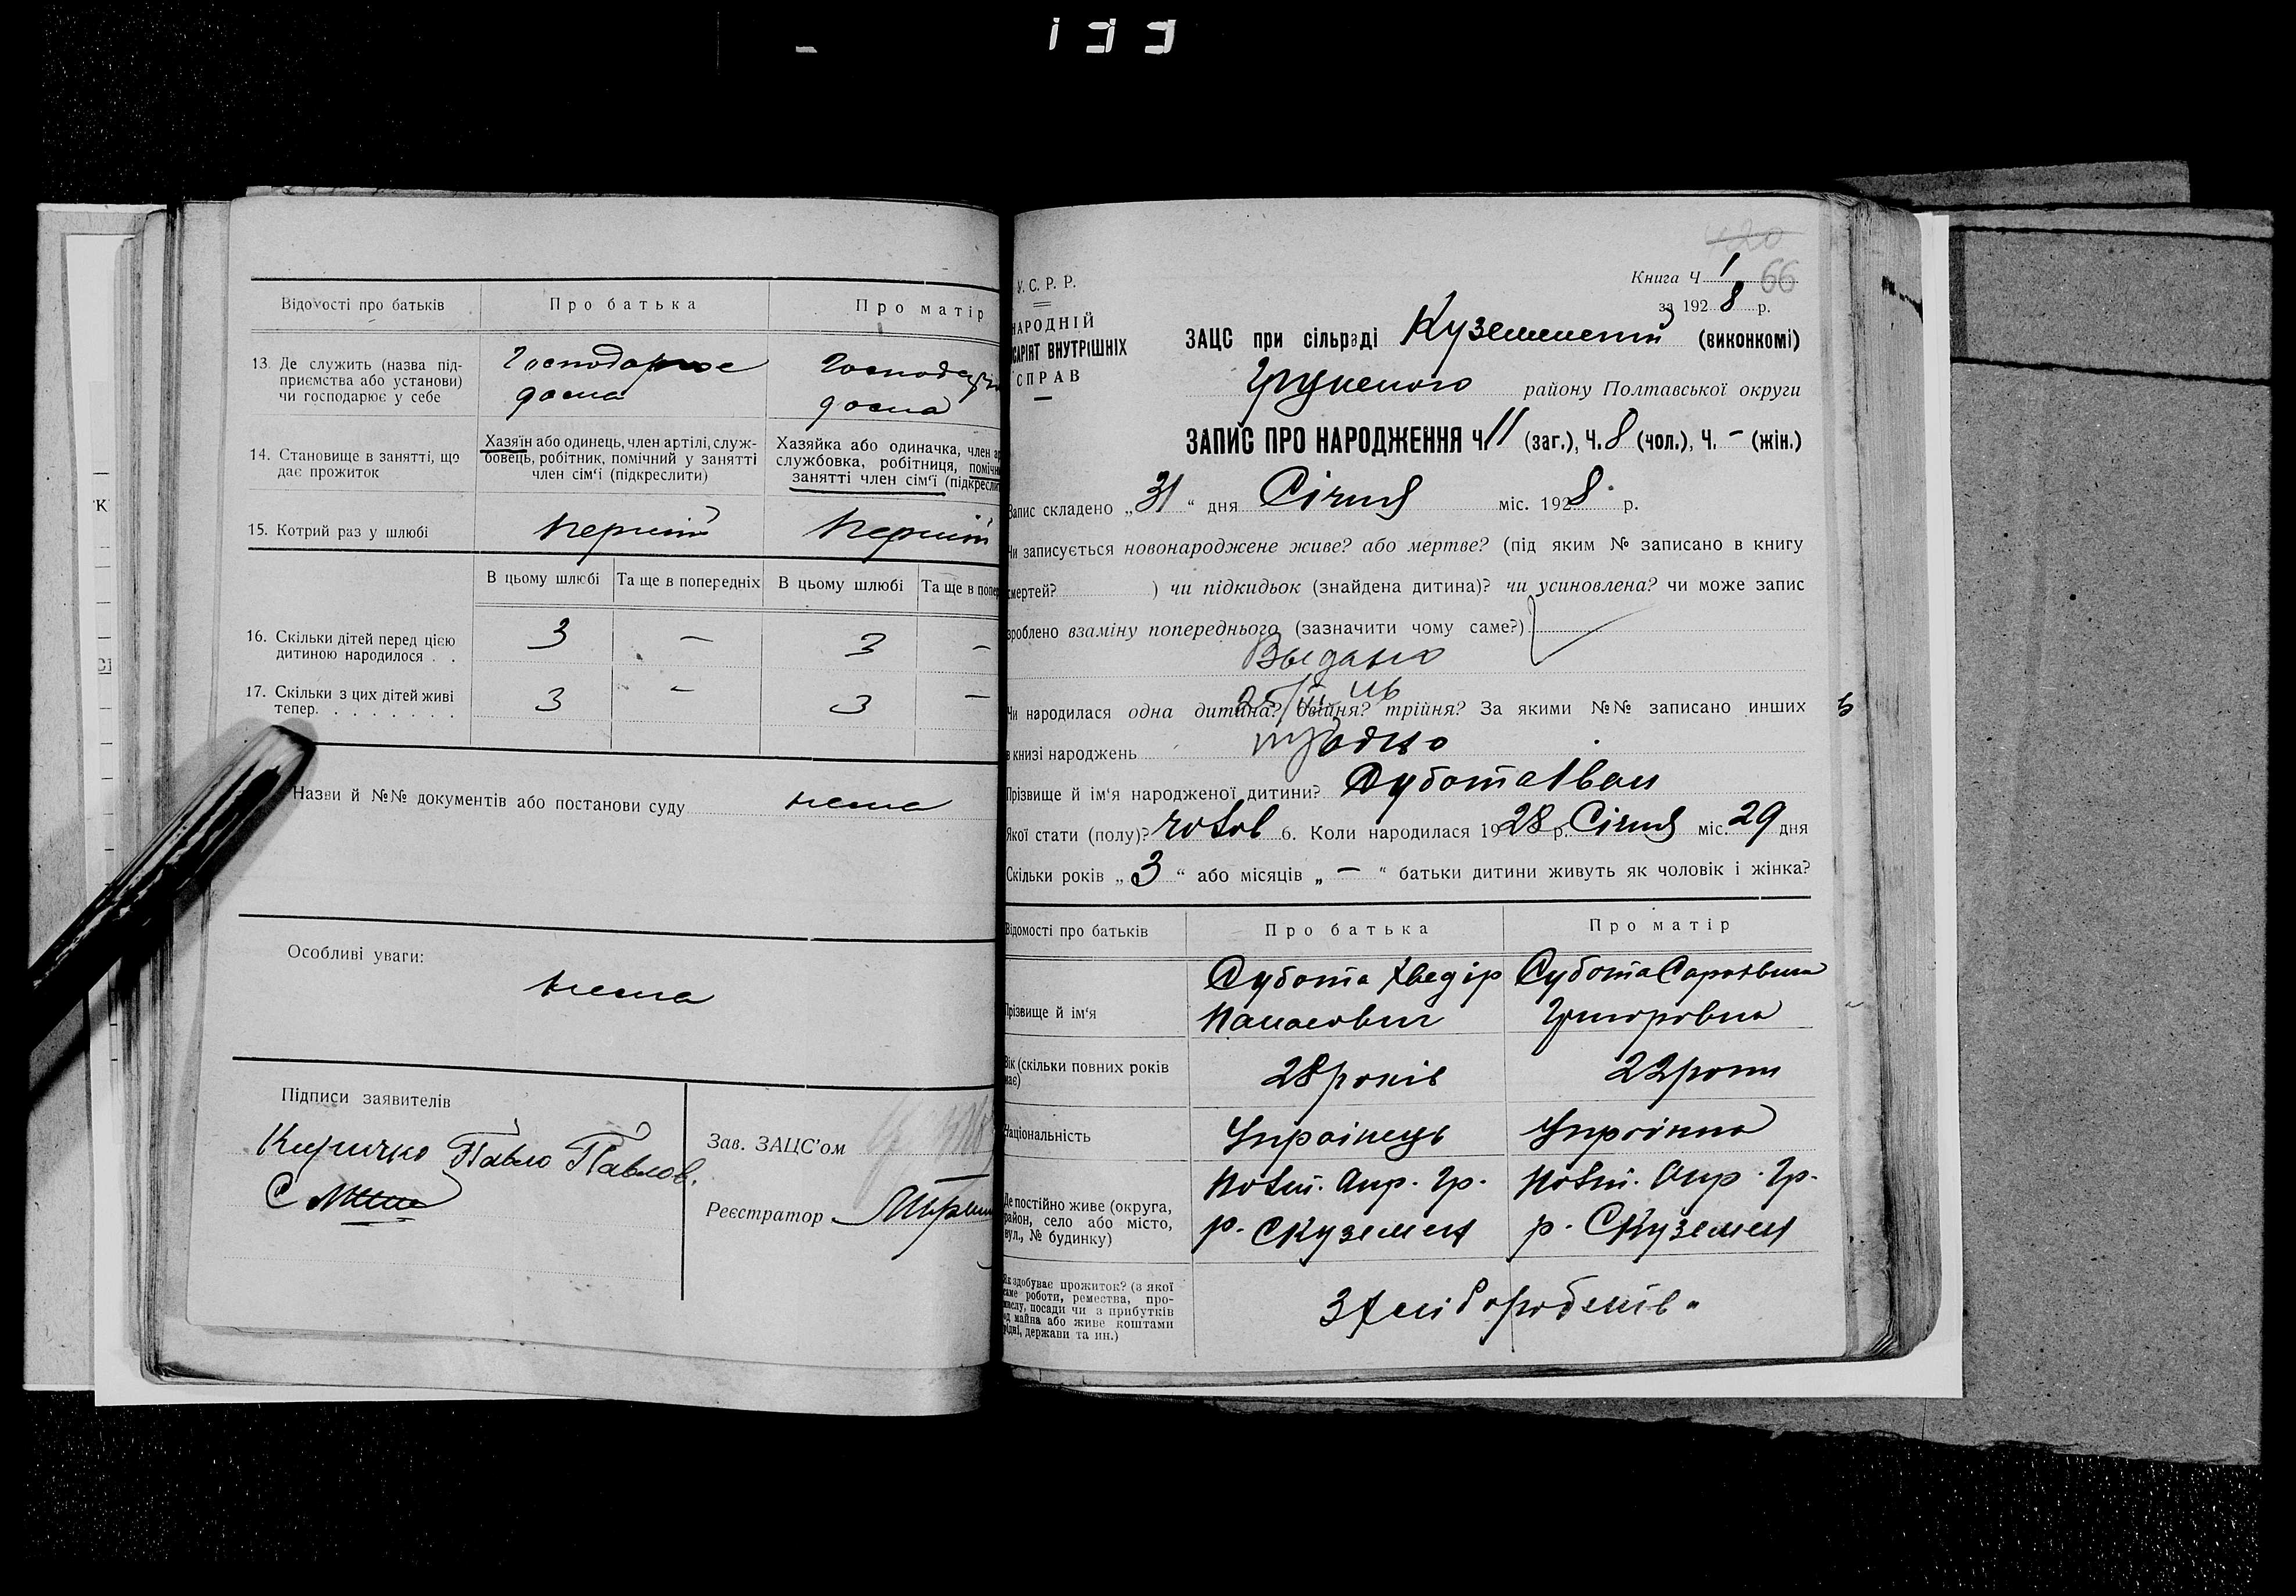 133
Відомості про батьків
Про батька
Про матір
13. Де служить (назва під-
приємства або установи)
чи господарює у себе
Господарює
дома
дома
14. Становище в занятті, що
дає прожиток
Хазяїн або одинець, член артілі, служ-
бовець, робітник, помічний у занятті
член сім'ї (підкреслити)
Хазяйка або одиначка, член
службовка, робітниця,
занятті член сім'ї
15. Котрий раз у шлюбі
перший
перший
В цьому шлюбі
Та ще в попередніх
В цьому шлюбі
Та ще в
16. Скільки дітей перед цією
дитиною народилося . .
3 - 3 -
17. Скільки з цих дітей живі
тепер. . . . . . . .
3 - 3 -
Назви й №№ документів або постанови суду нема
Особливі уваги:
нема
Підписи заявителів
Киричко Павло Павлов.
Зав. ЗАЦС'ом
Реєстратор
420
Книга Ч 1 66
за 1928 р.
У. С. Р. Р.
НАРОДНІЙ
ВНУТРІШНІХ
СПРАВ
ЗАЦС при сільраді (виконкомі)
району Полтавської округи
ЗАПИС ПРО НАРОДЖЕННЯ Ч. 11 (заг.), Ч. 8 (чол.), Ч. - (жін.)
Запис складено „31“ дня Січня міс. 1928 р.
Чи записується новонароджене живе? або мертве? (під яким № записано в книгу
смертей? ) чи підкидьок (знайдена дитина)? чи усиновлена? чи може запис
зроблено взаміну попереднього (зазначити чому саме?)
Выдано
Чи народилася одна дитина? двійня? трійня? За якими №№ записано инших
в книзі народжень одно
Прізвище й ім'я народженої дитини? Субота Іван
Якої стати (полу)? чолов 6. Коли народилася 1928 р. Січня міс. 29 дня
Скільки років „3“ або місяців „-“ батьки дитини живуть як чоловік і жінка?
Відомості про батьків
Про батька
Про матір
Прізвище й ім'я
Субота Хведір
Панасович
Субота
Григоровна
Вік (скільки повних років
має)
28 років
22 роки
Національність
Українець
Українка
Де постійно живе (округа,
район, село або місто,
вул., № будинку)
Полт. Окр. Гр.
р. С Куземен
Полт. Окр. Гр.
р. С Куземен
Як здобуває прожиток? (з якої
саме роботи, ремества, про-
мислу, посади чи з прибутків
од майна або живе коштами
рідні, держави та ин.)
З хліборобсків